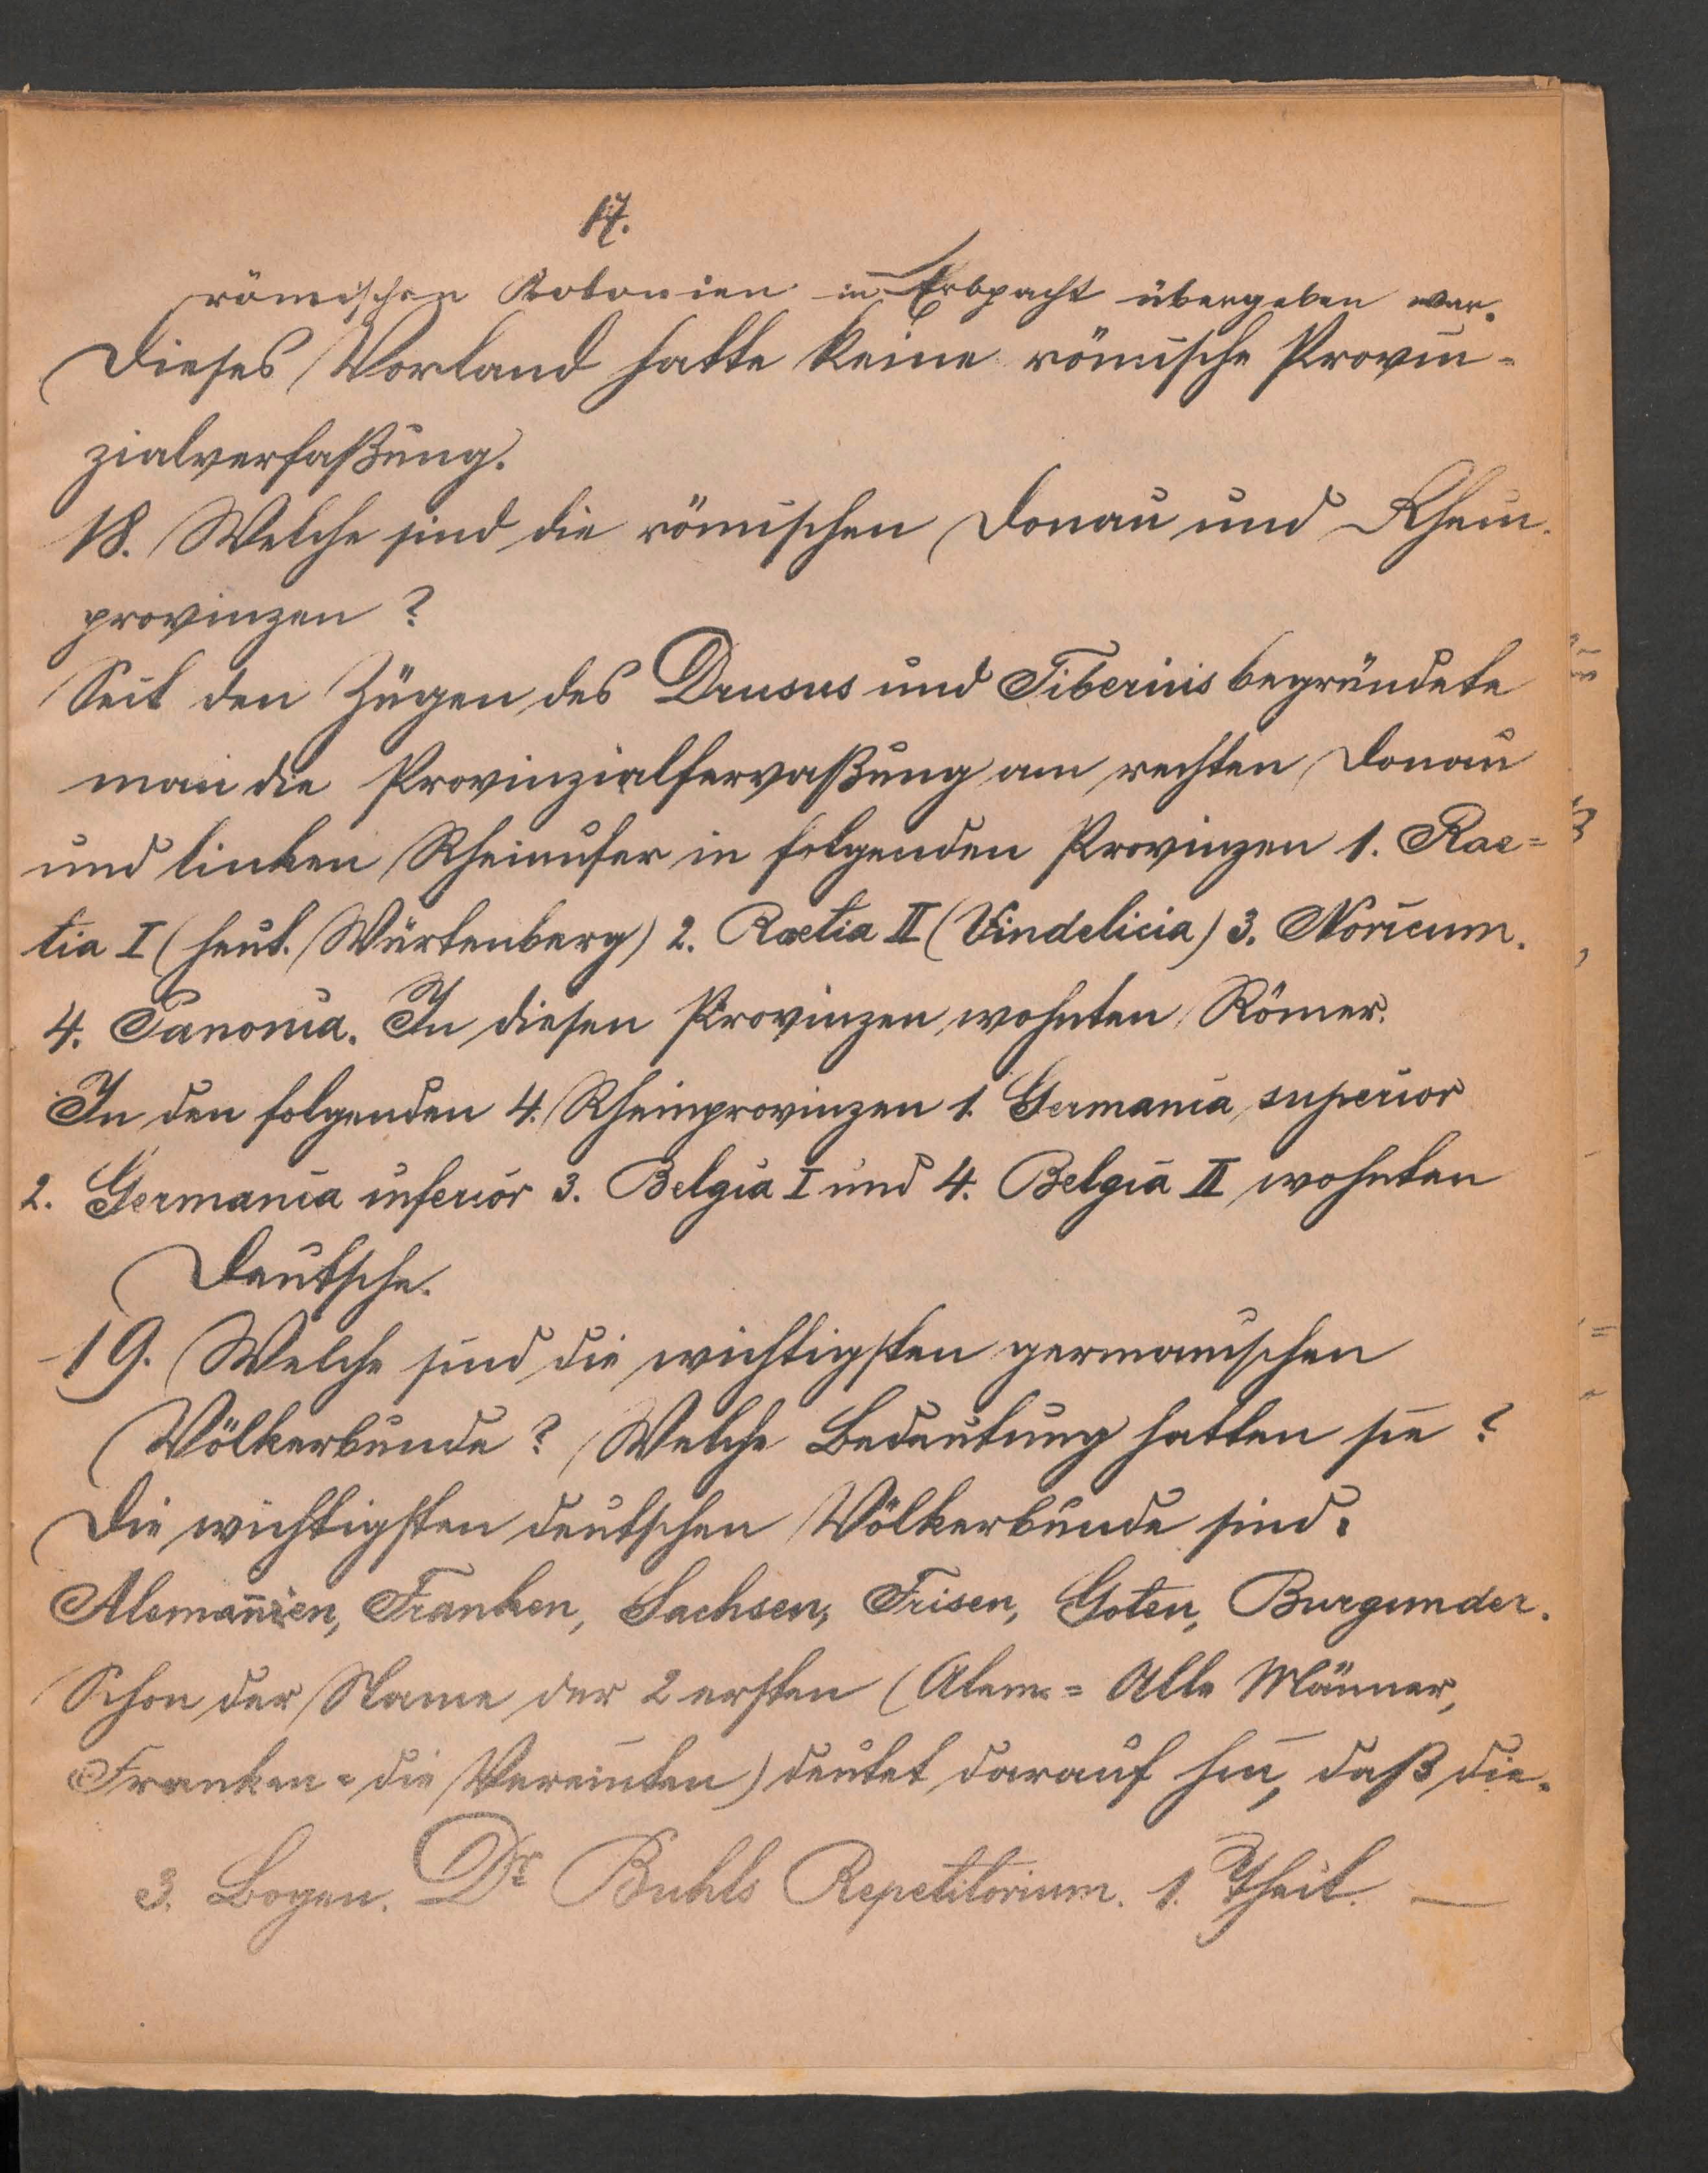 17.
römischen Kolonien in Erbpacht übergeben war.
Dieses Vorland hatte keine römische Provin-
zialverfaßung.
18. Welche sind die römischen Donau und Rhein-
provinzen?
Seit den Zügen des Drusus und Tiberius begründete
man die Provinzialfervaßung am rechten Donau
und linken Rheinufer in folgenden Provinzen 1. Rae=
tia I (heut. Würtenberg) 2. Raetia II (Vindelicia) 3. Noricum.
4. Panonia. In diesen Provinzen wohnten Römer.
In den folgenden 4. Rheinprovinzen 1. Germania superior
2. Germania inferior 3. Belgia I und 4. Belgia II wohnten
Deutsche.
19. Welche sind die wichtigsten germanischen
Völkerbunde? Welche Bedeutung hatten sie?
Die wichtigsten deutschen Völkerbunde sind:
Alemanien, Franken, Sachsen, Frisen, Goten, Burgunder.
Schon der Name der 2 ersten (Alem. = Alle Männer,
Franken = die Vereinten) deutet darauf hin, daß die-
3. Bogen. Dr Buhls Repetitorium. 1. Theil. —